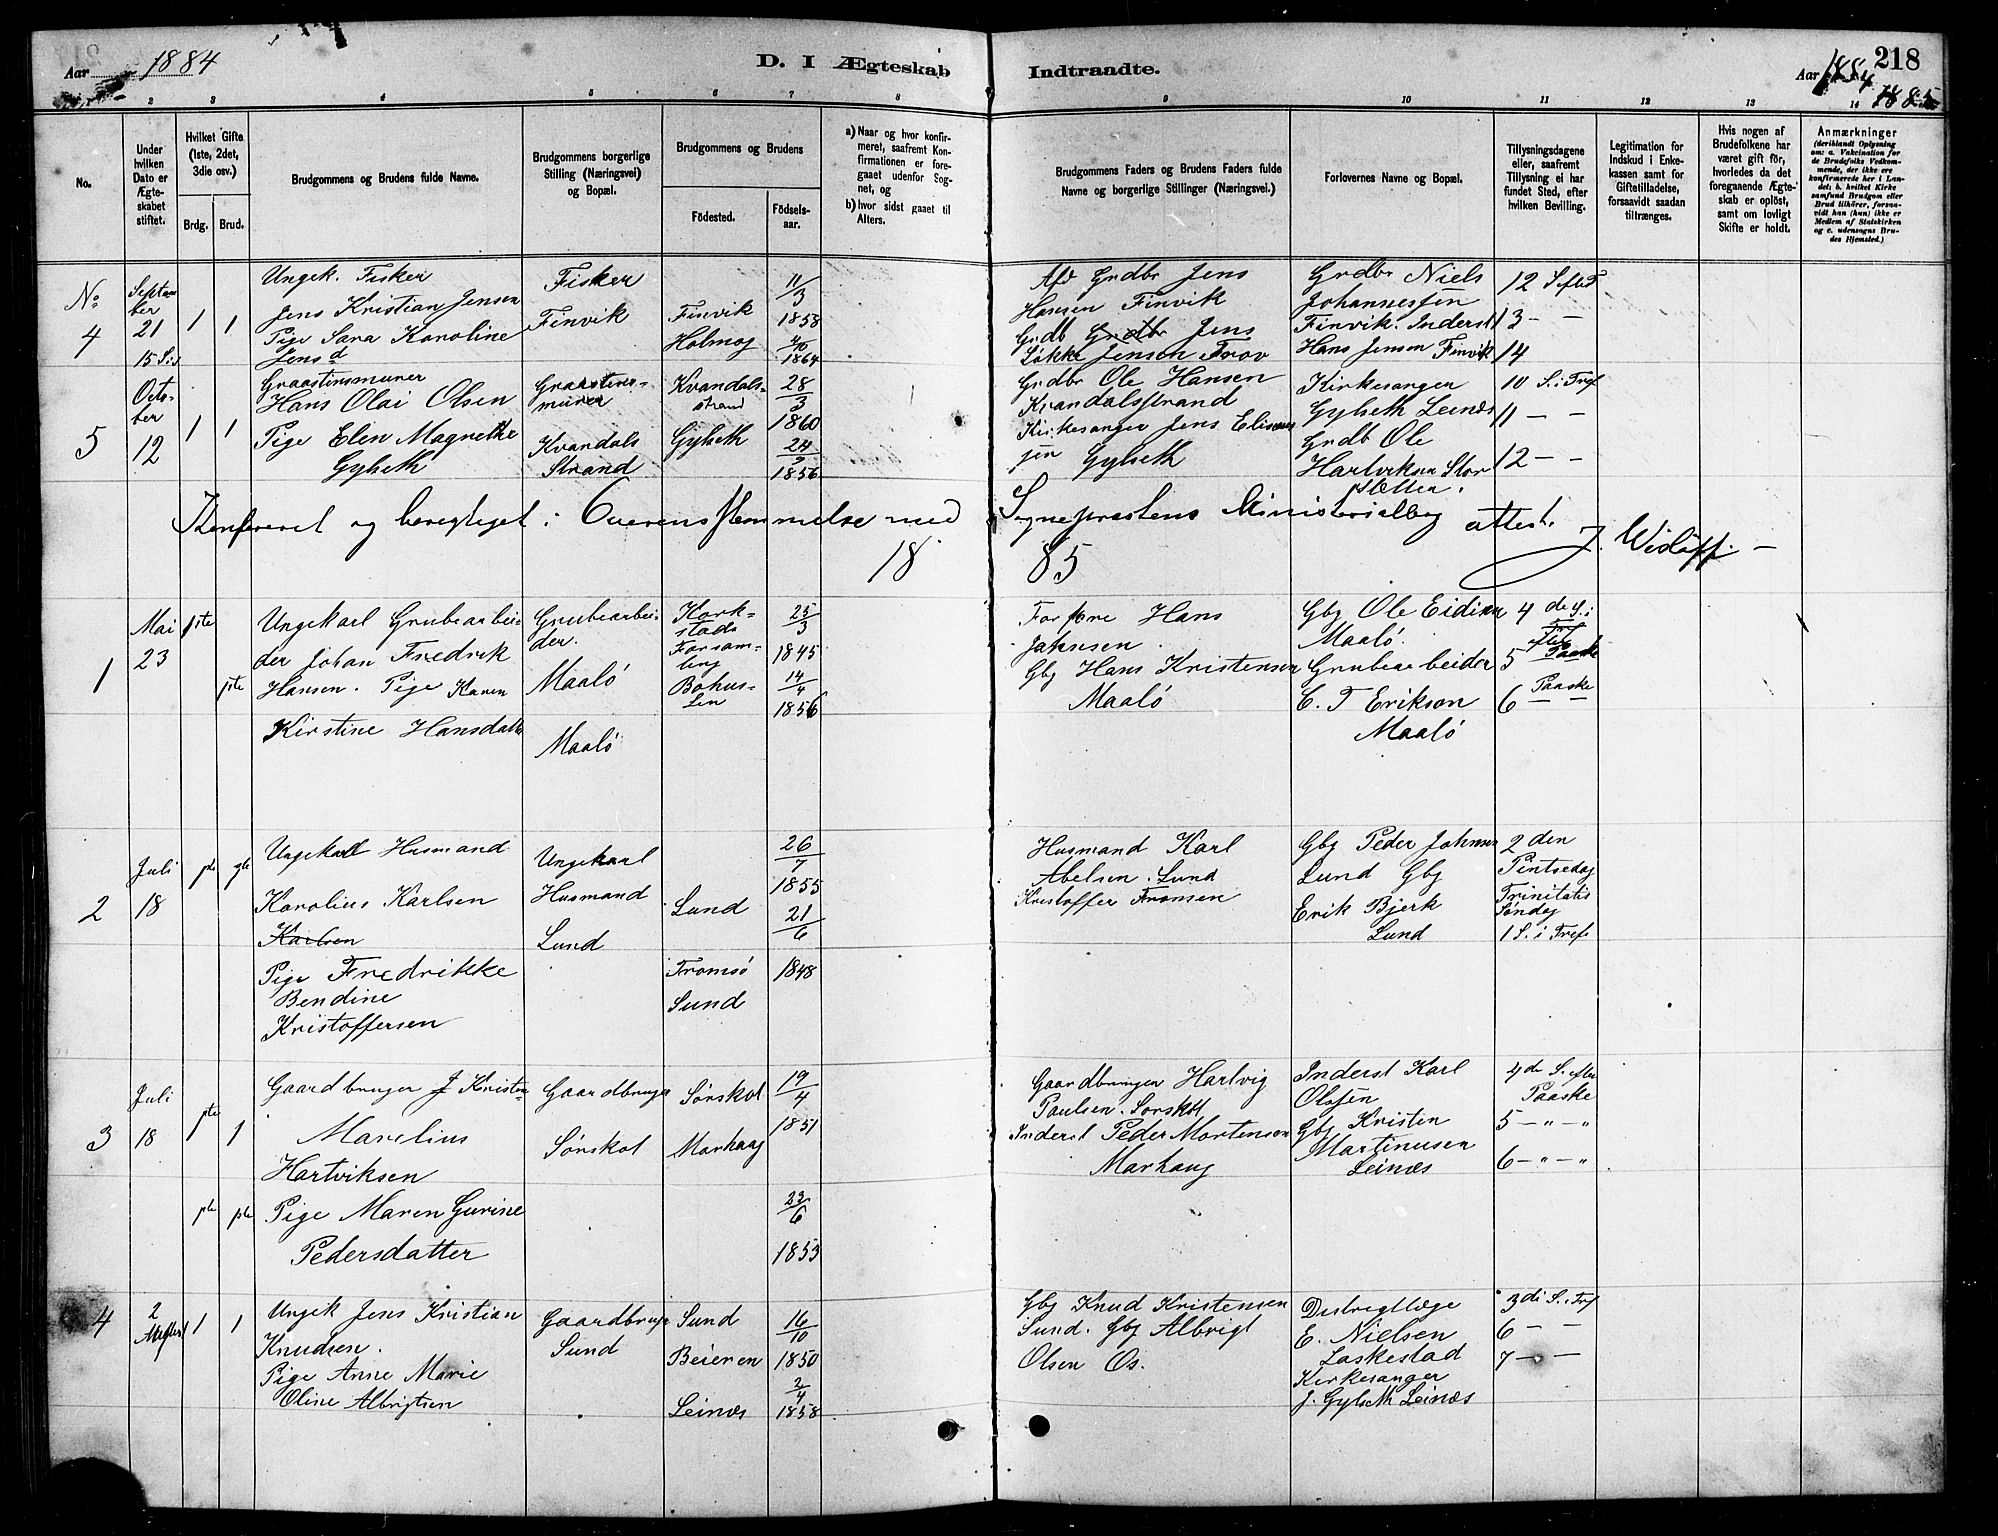 Aar 1884
D. I Ægteskab Indtraadte.
Aar 1884 1885
218
2 3 4 5 6 7 8 9 10 11 12 13 14
No.
Under hvilken Dato er Ægteskabet stiftet.
Hvilket Gifte (1ste, 2det, 3die osv.)
Brdg. Brud.
Brudgommens og Brudens fulde Navne.
Brudgommens borgerlige Stilling (Næringsvei) og Bopæl.
Brudgommens og Brudens
Födested. Födselsaar.
a) Naar og hvor konfirmeret, saafremt Konfirmationen er foregaaet udenfor Sognet, og
b) hvor sidst gaaet til Alters.
Brudgommens Faders og Brudens Faders fulde Navne og borgerlige Stillinger (Næringsvei.)
Forlovernes Navne og Bopæl.
Tillysningsdagene eller, saafremt Tillysning ei har fundet Sted, efter hvilken Bevilling.
Legitimation for Indskud i Enkekassen samt for Giftetilladelse, forsaavidt saadan tiltrænges.
Hvis nogen af Brudefolkene har været gift för, hvorledes da det foregaaende Ægteskab er oplöst, samt om lovligt Skifte er holdt.
Anmærkninger (deriblandt Oplysning om: a. Vakcination for de Brudefolks Vedkommende, der ikke ere konfirmerede her i Landet; b. hvilket Kirkesamfund Brudgom eller Brud tilhörer, forsaavidt han (hun) ikke er Medlem af Statskirken og c. udensogns Brudes Hjemsted.)
No 4
September 21
1 1
Ungek. Fisker
Jens Kristian Jensen
Pige Sara Karoline
Jensd
Fisker
Finvik
Finvik
Holmog
11/3
1858
1864
Afd Grdbr Jens
Hansen Finvik
Grdb Grdbr Jens
Løkke Jensen Trov
Grdbr Niels
Johannessen
Finvik. Inderst
Hans Jensen Finvik
12 S eft T
13 — —
14
5
October 12
1 1
Graastensmurer
Hans Olai Olsen
Pige Elen Magrethe
Gylseth
Graastensmurer
Kvandals
Strand
Kvandalsstrand
Gylseth
28/3
1860
24/3
1856
Grdbr Ole Hansen
Kvandalsstrand
Kirkesanger Jens Eliseussen
Gylseth
Kirkesanger
Gylseth Leinæs
Grdb Ole
Hartviksen Storslætten.
10 S. i Tref
11 — —
12 — —
Konfereret og berigtiget i Overensstemmelse med Sognepræstens Ministerialbog attest.
J. Wisløff —
1885
1
Mai 23
1ste
1ste
Ungekarl Grubearbeider
Johan Fredrik
Hansen. Pige Karen
Kirstine Hansdatter
Grubearbeider.
Maalö
Maalö
Korkstads
Forsamling
Bohuslen
25/3
1845
14/4
1856
Forpere Hans
Jahnsen
Gbg Hans Kristensen
Maalö
Gbg Ole Eidissen
Maalö.
Grubearbeider
C. T Erikson
Maalö
4 de S. i
5 Paaske
6 Paaske
2
Juli 18
Ungekarl Husmand
Karolius Karlsen
Karlsen
Pige Fredrikke
Bendine
Kristoffersen
Ungekarl
Husmand
Lund
Lund
Tromsö
Sund
26/7
1855
21/6
1848
Husmand Karl
Abelsen. Lund
Kristoffer Fransen
Gbg Peder Johnsen
Lund Gbg
Erik Bjerk
Lund
2 den
Pintsedag
Trinitatis
Söndag
1 S. i Tref
3
Juli 18
1
Gaardbruger J Kristen
Marelius
Hartviksen
Pige Maren Gurine
Pedersdatter
Gaardbruger
Sørskot
Sørskot
Marhaug
19/4
1851
23/6
1853
Gaardbruger Hartvig
Paulsen. Sørskot
Inderst Peder Mortensen
Marhaug
Inderst Karl
Olsen
Gbg Kristen
Martinusen
Leinæs
4 de S. efter
Paaske
5 — " — "
6 — " — "
4
2
1 1
Ungek Jens Kristian
Knudsen.
Pige Anne Marie
Oline Albrigtsen
Gaardbruger
Sund
Sund
Beieren
Leinæs
16/10
1850
2/4
1858
Gbg Knud Kristensen
Sund. Gbg Albrigt
Olsen Os.
Distrigtlæge
E. Nielsen
Laskestad
Kirkesanger
J. Gylseth Leinæs
3 di S. i Tref
6 — —
7 — —